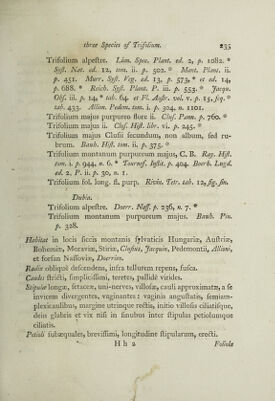 three Species of Trifolium. 235
Trifolium alpestre. Linn. Spec. Plant. ed. 2, p. 1082. *
Syst. Nat. ed. 12, tom. ii. p. 502. * Mant. Plant. ii.
p. 451. Murr. Syst. Veg. ed. 13, p. 573, * et ed. 14,
p. 688. * Reich. Syst. Plant. P. iii. p. 553. * Jacqu.
Obs. iii. p. 14, * tab. 64. et Fl. Austr. vol. v. p. 15, fig. *
tab. 433. Allion. Pedem. tom. i. p. 304, n. 1101.
Trifolium majus purpureo flore ii. Clus. Pann. p. 760. *
Trifolium majus ii. Clus. Hist. libr. vi. p. 245. *
Trifolium majus Clusii secundum, non album, sed ru-
brum. Bauh. Hist. tom. ii. p. 375. *
Trifolium montanum purpureum majus, C. B. Ray. Hist.
tom. i. p. 944, n. 6. * Tournef. Instit. p. 404. Boerh. Lugd.
ed. 2, P. ii. p. 30, n. 1.
Trifolium fol. long. fl. purp. Rivin. Tetr. tab. 12, fig. sin.
Dubia.
Trifolium alpestre. Doerr. Nass. p. 236, n. 7. *
Trifolium montanum purpureum majus. Bauh. Pin.
p. 328.
Habitat in locis siccis montanis sylvaticis Hungariæ, Austriæ,
Bohemiæ, Moraviæ, Stiriæ, Clusius, Jacquin, Pedemontii, Allioni,
et forsan Nassoviæ, Doerrien.
Radix obliqué descendens, infra tellurem repens, fusca.
Caulis stricti, simplicissimi, teretes, pallidè virides.
Stipulæ longæ, setaceæ, uni-nerves, villosæ, cauli approximatæ, a se
invicem divergentes, vaginantes: vaginis angustatis, semiam-
plexicaulibus, margine utrinque rectis, initio villosis ciliatisque,
dein glabris et vix nisi in sinubus inter stipulas petiolumque
ciliatis.
Petioli subæquales, brevissimi, longitudine stipularum, erecti.
H h 2 Foliola